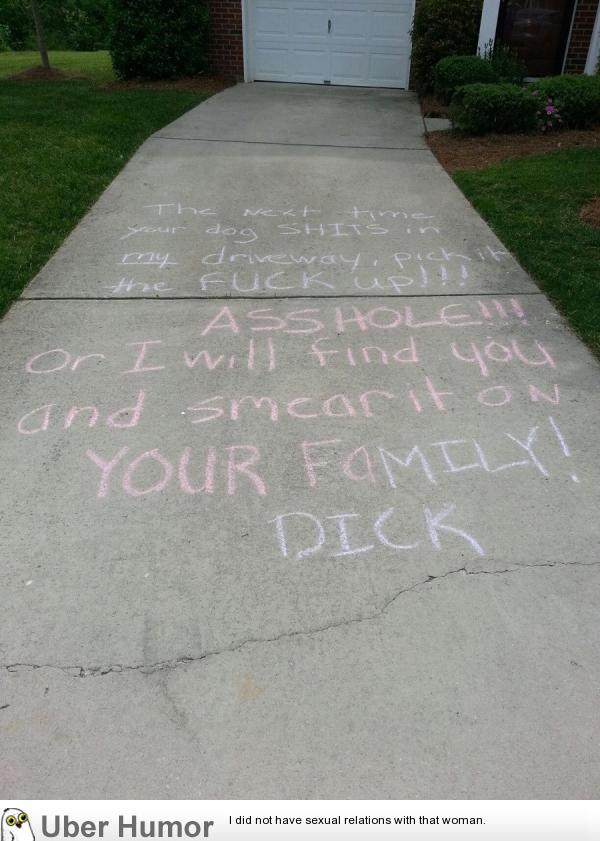 The Next time
your dog SHITS in
my driveway, pick it
the FUCK up!!!
ASSHOLE!!!
Or I will find you
and smear it on
YOUR FaMILY!
DICK
Uber Humor
I did not have sexual relations with that woman.